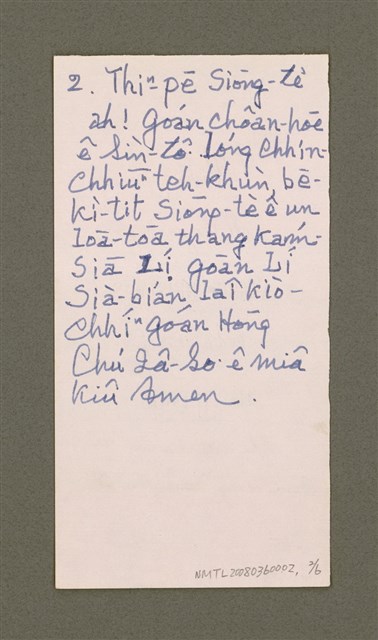 2. Thiⁿ-pē Siōng-tè
ah! Goán choân-hōe
ê Sìn-tô͘ lóng chhin-
chhiūⁿ teh-khùn, bē-
kì-tit Siōng-tè ê un
loā-toā thang kám-
Siā Lí goán Lí
Sià-bián lâi kiò-
chhíⁿ goán Hōng
Chú Iâ-So͘ ê miâ
kiû Amen.
NMTL20080360002, 2/6